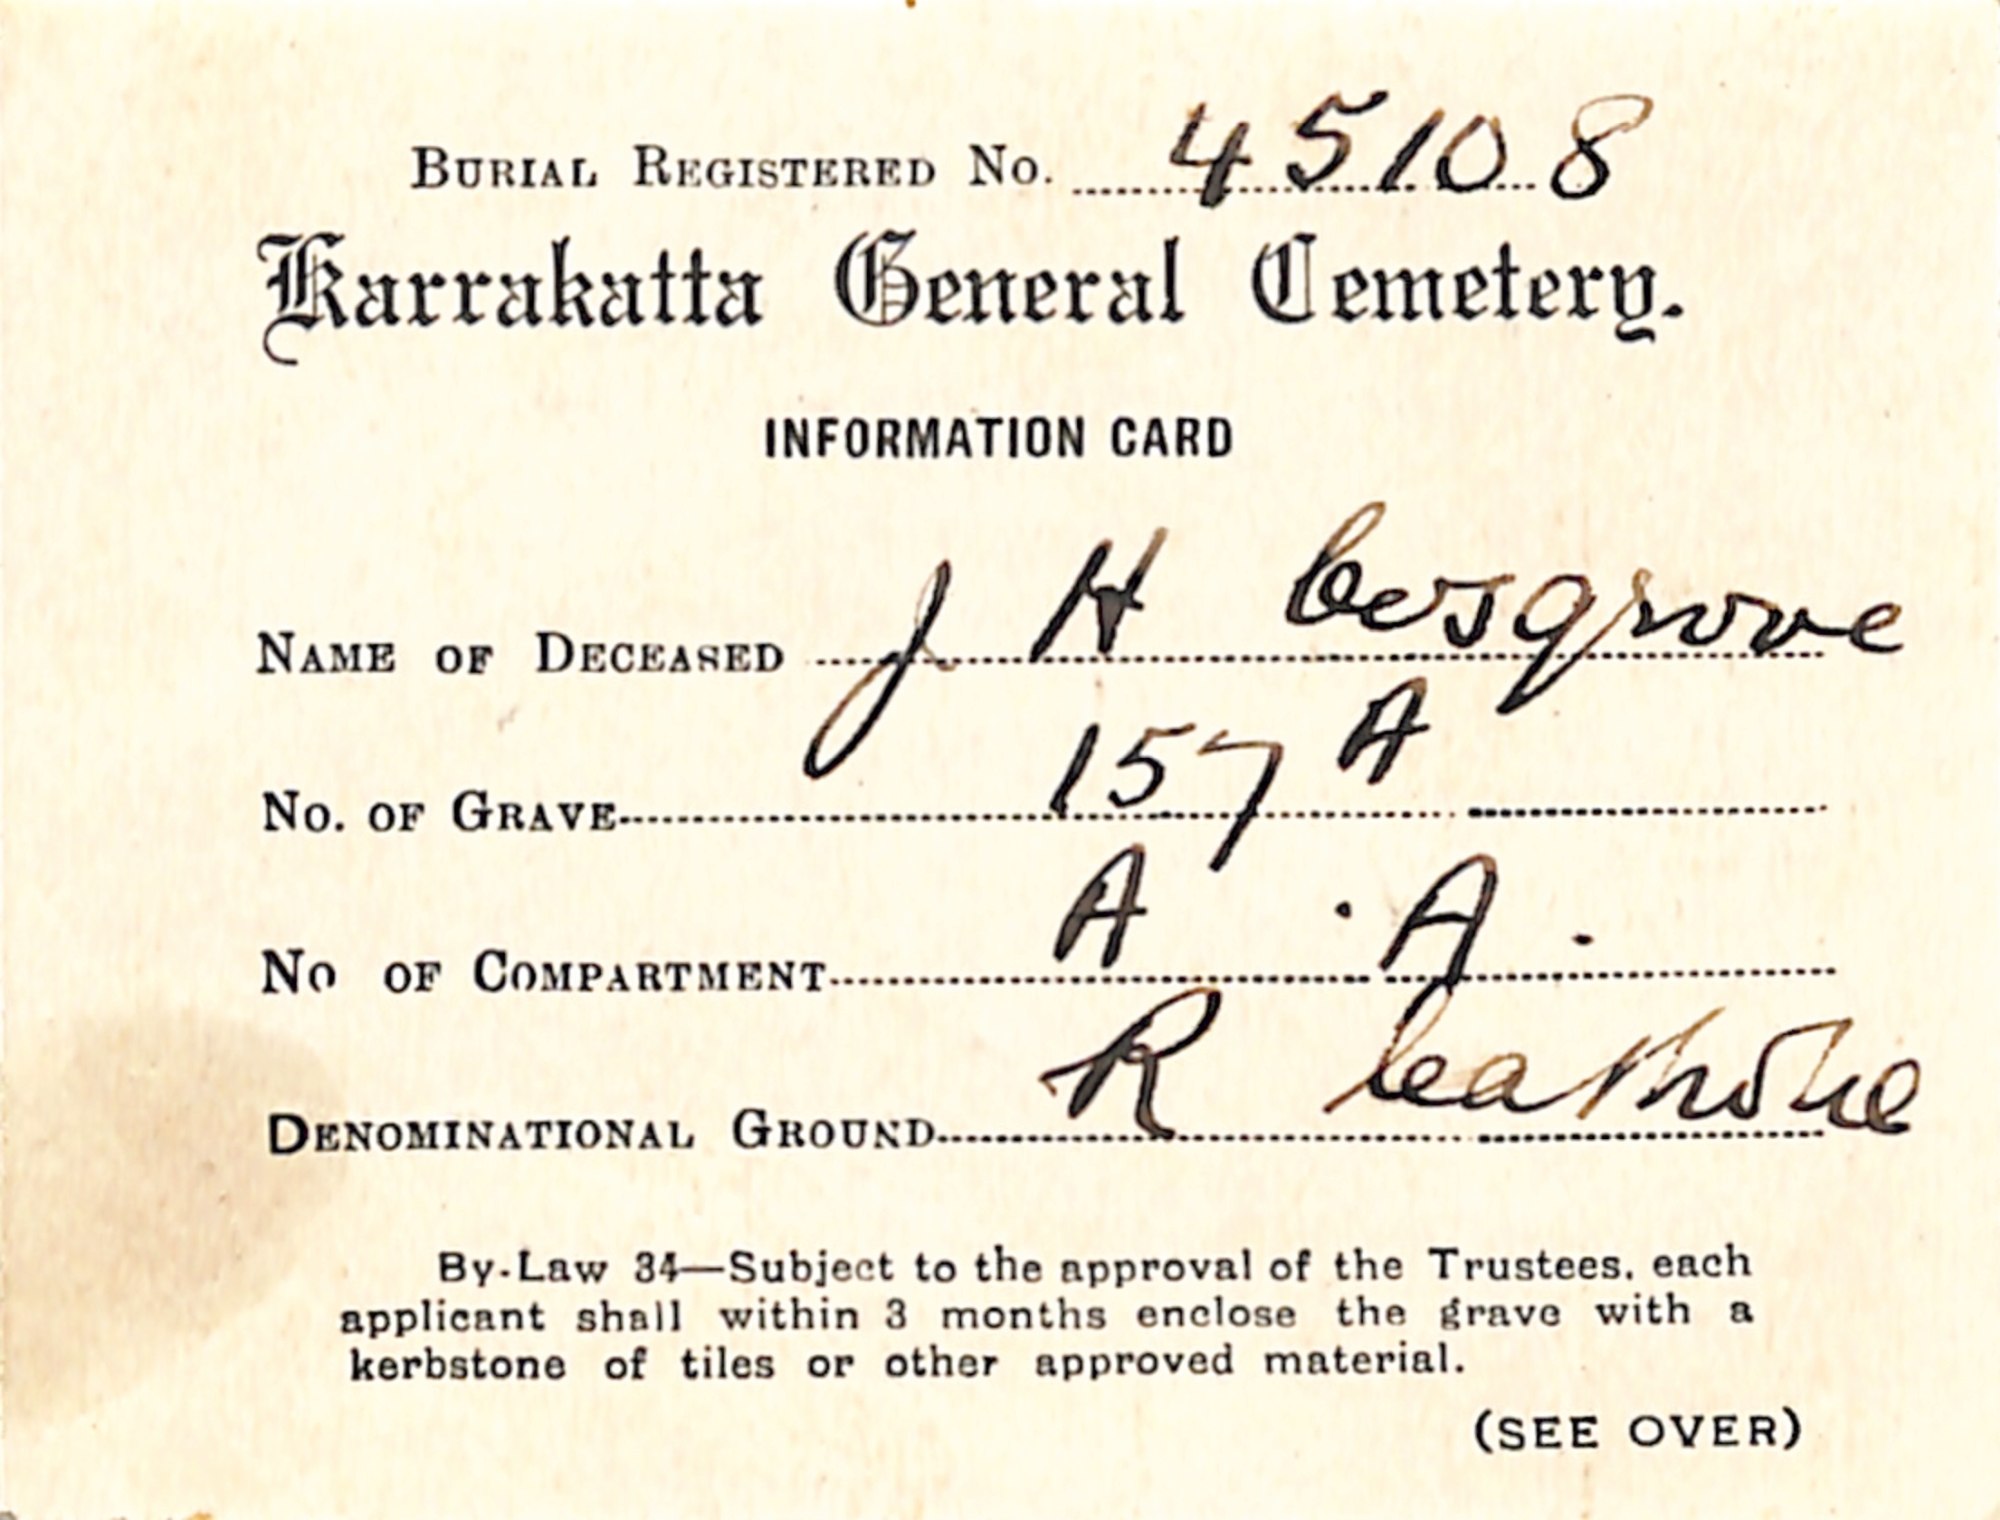 BURIAL REGISTERED No. 45108
Karrakatta General Cemetery.
INFORMATION CARD
NAME OF DECEASED J H Cosgrove
No. OF GRAVE 157 A
No OF COMPARTMENT A . A .
DENOMINATIONAL GROUND R Catholic
By-Law 34—Subject to the approval of the Trustees. each
applicant shall within 3 months enclose the grave with a
kerbstone of tiles or other approved material.
(SEE OVER)